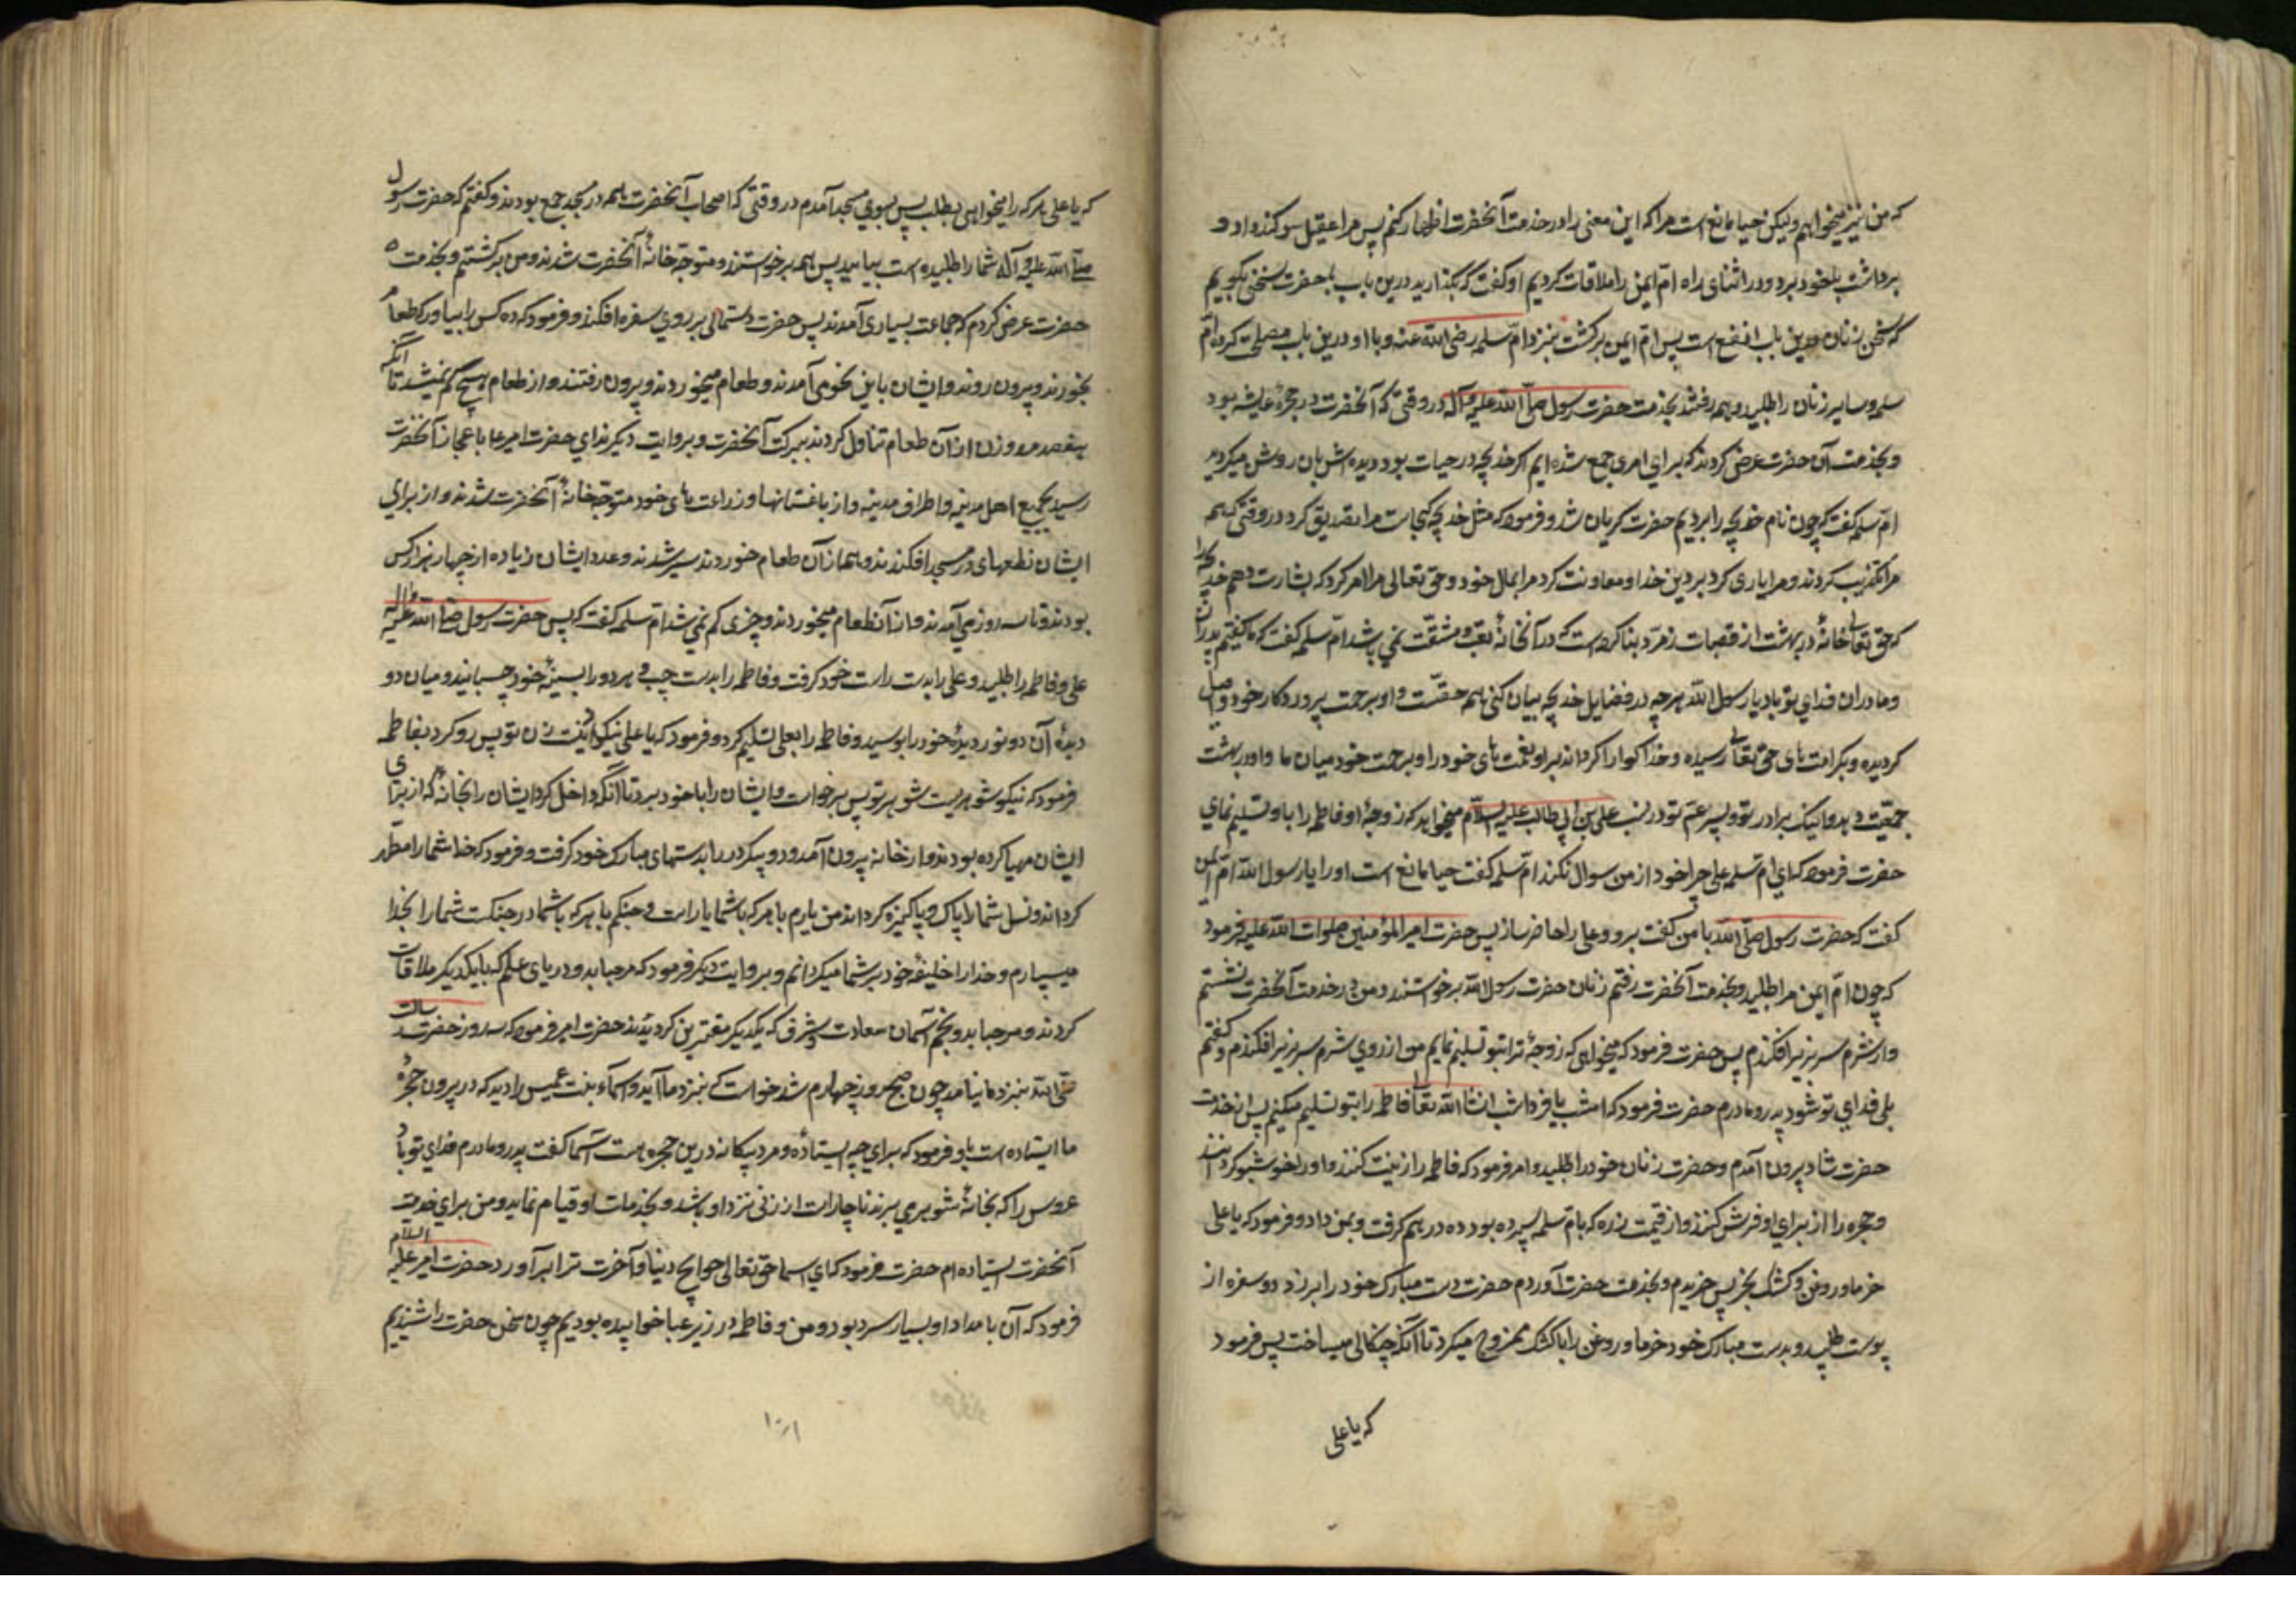 که من نیز میخواهم ولیکن حیا مانع است مرا که این معنی را در خدمت آنحضرت اظهار کنم پس مرا عقیل سوکند داد و
برداشت با خود برد و در اثنای راه امّ ایمن را ملاقات کردیم او کفت که بکذارید درین باب با حضرت سخنی بکوییم
که سخن زنان درین باب انفع است پس امّ ایمن برکشت بنزد امّ سلمه رضی الله عنه و با او درین باب مصلحت کرد امّ
سلمه و سایر زنان را طلبید و همه رفتند بخدمت حضرت رسول صلّی الله علیه و آله در وقتی که آنحضرت در حجرهٔ عایشه بود
و بخدمت آن حضرت عرض کردند که برای امری جمع شده ایم اکر خدیجه در حیات بود دیده اش بان روشن میکردید
امّ سلمه کفت که چون نام خدیجه را بردیم حضرت کریان شد و فرمود که مثل خدیجه کجاست مرا تصدیق کرد در وقتی که همه
مرا تکذیب کردند و مرا یاری کرد بر دین خدا و معاونت کرد مرا بمال خود و حق تعالی مرا امر کرد که بشارت دهم خدیجه را
که حق تعالی خانهٔ در بهشت از قصبات زمرّد بنا کرده است که در آنخانهٔ تعب و مشقّت نمی باشد امّ سلمه کفت که ما کفتیم پدران
و مادران فدای تو باد یا رسول الله هرچه در فضایل خدیجه بیان کنی همه حقست و او برحمت پروردکار خود واصل
کردیده و بکرامت های حق تعالی رسیده و خدا کوارا کرداند بر او نعمت های خود را و برحمت خود میان ما و او در بهشت
جمعیّت دهد و اینک برادر تو و پسر عمّ تو در نسب علی بن ابی طالب علیه السلام میخواهد که زوجهٔ او فاطمه را باو تسلیم نمای
حضرت فرمود که ای امّ سلمه علی چرا خود از من سوال نکرد امّ سلمه کفت حیا مانع است او را یا رسول الله امّ ایمن
کفت که حضرت رسول صلّی الله با من کفت برو و علی را حاضر ساز پس حضرت امیر المؤمنین صلوات الله علیه فرمود
که چون امّ ایمن مرا طلبید و بخدمت آنحضرت رفتم زنان حضرت رسول الله برخواستند و من در خدمت آنحضرت نشستم
و از شرم سر بزیر افکندم پس حضرت فرمود که میخواهی که زوجهٔ ترا بتو تسلیم نمایم من از روی شرم سر بزیر افکندم و کفتم
بلی فدای تو شود پدر و مادرم حضرت فرمود که امشب یا فرداشب انشاالله تعالی فاطمه را بتو تسلیم میکنم پس از خدمت
حضرت شاد بیرون آمدم و حضرت زنان خود را طلبید و امر فرمود که فاطمه را زینت کنند و او را خوشبو کردانند
و حجره را از برای او فرش کنند و از قیمت زره که بام سلمه سپرده بود ده درهم کرفت و بمن داد و فرمود که یا علی
خرما و روغن و کشک بخر پس خریدم و بخدمت حضرت آوردم حضرت دست مبارک خود را بر زد و سفره از
پوست طلبید و بدست مبارک خود خرما و روغن را با کشک ممزوج میکرد تا آنکه چنکالی میساخت پس فرمود
که یا علی
که یا علی هر که را میخواهی بطلب پس بسوی مسجد آمدم در وقتی که اصحاب آنحضرت همه در مسجد جمع بودند و کفتم که حضرت رسول
صلّی الله علیه و آله شما را طلبیده است بیایید پس همه برخواستند و متوجّه خانهٔ آنحضرت شدند و من برکشتم و بخدمت
حضرت عرض کردم که جماعت بسیاری آمدند پس حضرت دستمالی بر روی سفره افکند و فرمود که ده کس را بیاور که طعام
بخورند و بیرون روند و ایشان باین نحو می آمدند و طعام میخوردند و بیرون رفتند و از طعام هیچ کم نمیشد تا آنکه
هفتصد مرد و زن از آن طعام تناول کردند ببرکت آنحضرت و بروایت دیکر ندای حضرت امیر عا باعجاز آنحضرت
رسید بجمیع اهل مدینه و اطراف مدینه و از باغستانها و زراعت های خود متوجّه خانهٔ آنحضرت شدند و از برای
ایشان نطعهای در مسجد افکندند و همه از آن طعام خوردند سیر شدند و عدد ایشان زیاده از چهار هزار کس
بودند و تا سه روز می آمدند و از آن طعام میخوردند و چیزی کم نمی شد امّ سلمه کفت که پس حضرت رسول صلّی الله علیه و آله
علی و فاطمه را طلبید و علی را بدست راست خود کرفت و فاطمه را بدست چپ و هر دو را بسینهٔ خود چسبانید و میان دو
دیدهٔ آن دو نور دیدهٔ خود را بوسید و فاطمه را بعلی تسلیم کرد و فرمود که یا علی نیکو زنیست زن تو پس رو کرد بفاطمه
فرمود که نیکو شوهریست شوهر تو پس برخواست و ایشان را با خود برد تا آنکه داخل کرد ایشان را بخانهٔ که از برای
ایشان مهیا کرده بودند و از خانه بیرون آمد و دو پیکر در را بدستهای مبارک خود کرفت و فرمود که خدا شما را مطهر
کرداند و نسل شما را پاک و پاکیزه کرداند من یارم با هر که با شما یار است و جنکم با هر که با شما در جنکست شما را بخدا
میسپارم و خدا را خلیفهٔ خود بر شما میکردانم و بروایت دیکر فرمود که مرحبا بدو دریای علم که با یکدیکر ملاقات
کردند و مرحبا بدو نجم آسمان سعادت و شرف که بیکدیکر مقترین کردیدند حضرت امیر فرمود که سه روز حضرت رسالت
صلّی الله بنزد ما نیامد چون صبح روز چهارم شد خواست که بنزد ما آید و اسماء بنت عمیس را دید که در بیرون حجرهٔ
ما ایستاده است باو فرمود که برای چه ایستادهٔ و مرد بیکانه درین حجره هست اسما کفت پدر و مادرم فدای تو باد
عروس را که بخانهٔ شوهر می برند ناچار است از زنی نزد او باشد و بخدمات او قیام نماید و من برای خدمت
آنحضرت ایستاده ام حضرت فرمود که ای اسما حق تعالی حوایج دنیا و آخرت ترا بر آورد حضرت امیر علیه السلام
فرمود که آن بامداد او بسیار سرد بود و من و فاطمه در زیر عبا خوابیده بودیم چون سخن حضرت را شنیدیم